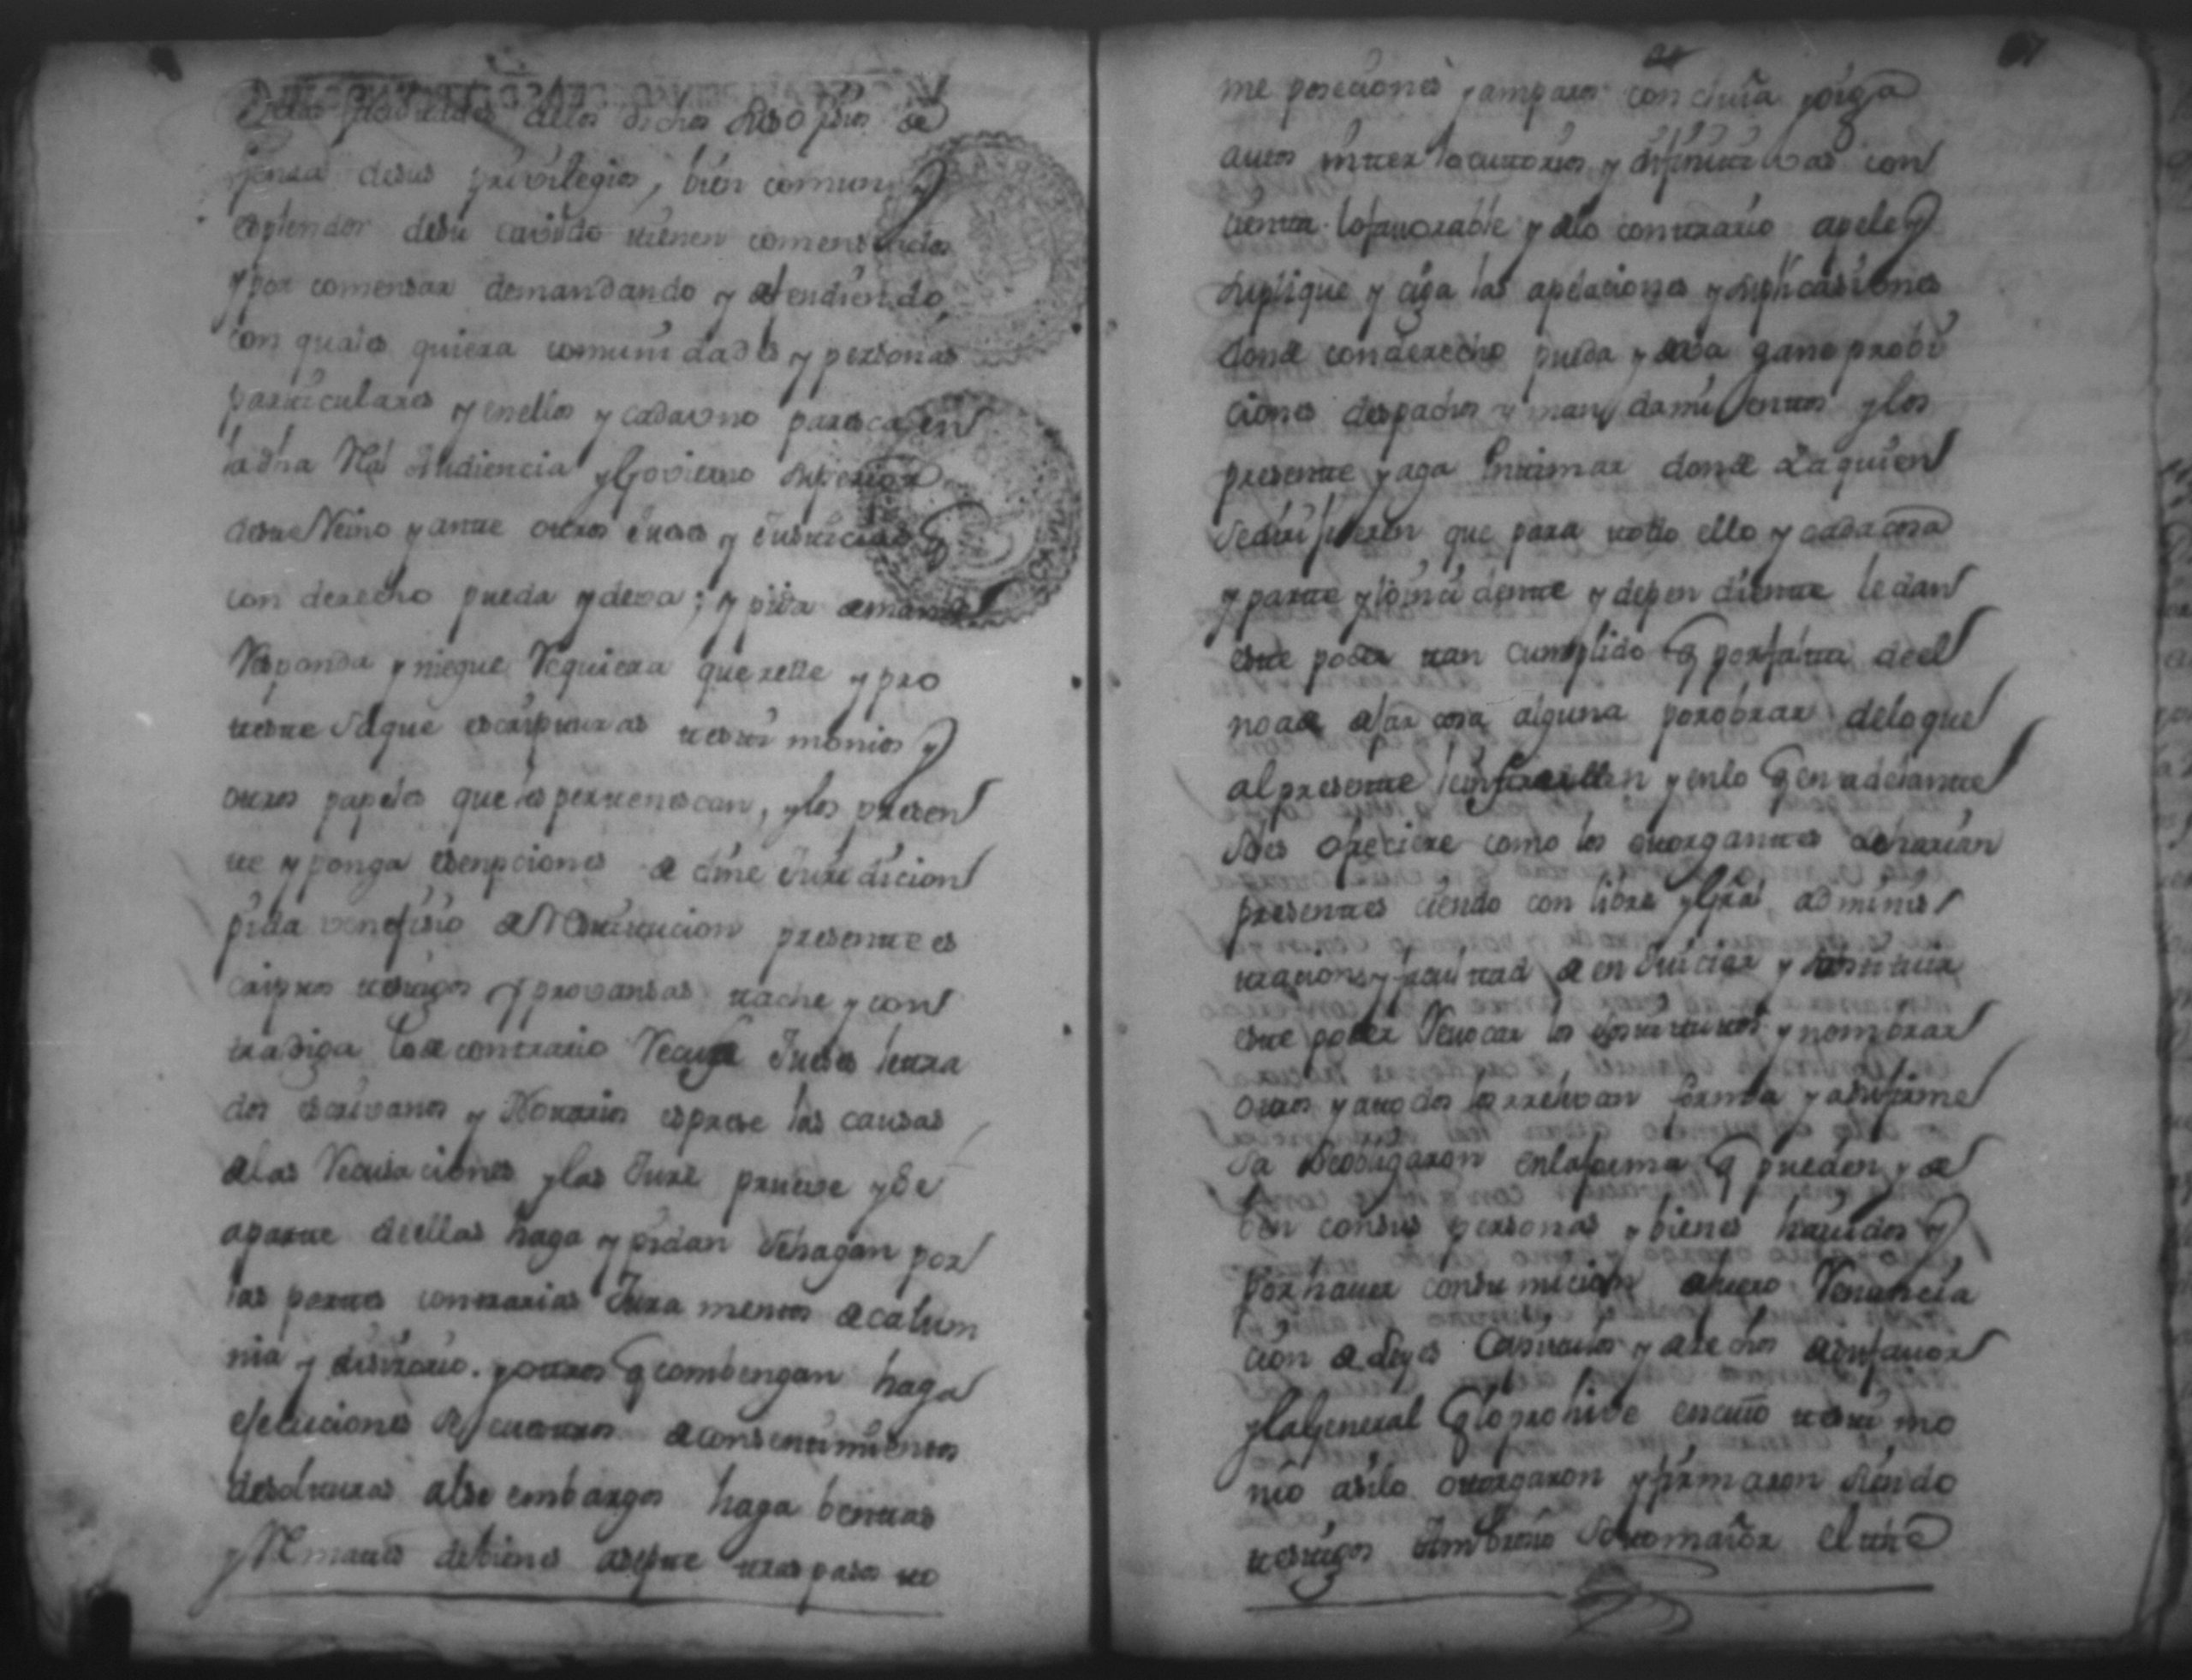 dichos
jensa desus privilegios, bien comun y
esplendor desu cavildo tienen comensados
y por comensar demandando y defendiendo,
con quales quiera comunidades y personas
particulares y enellos y cadauno paresca en
la dha Rl Audiencia y Govierno Superior
deste Reino y ante otros Jueses y Justicias q
con derecho pueda y deva; y pida demande
Responda y niegue Requiera querelle y pro
teste Saque escripturas testimonios y
otros papeles que les pertenescan, y los presen
te y ponga esenpciones de Juridicion
pida venefisio de Restitucion presente es
criptos testigos y provansas tache y con
tradiga lo de contrario Recuse Jueses letra
dos escrivanos y Notarios esprese las causas
de las Recusaciones y las Jure prueve y Se
aparte deellas haga y pidan Sehagan por
las partes contrarias Juramentos de calum
nia y desisorio. y otros q combengan haga
ejecuciones de consentimientos
desolturas alse embargos haga bentas
y Remates debienes asepte traspasos to
me poseciones y amparos con y oiga
autos interlocutorios y difinitivas con
cienta lo favorable y delo contrario apele y
Suplique y Siga las apelaciones y Suplicasiones
donde conderecho pueda y deva gane provi
ciones despachos y mandamientos y los
presente y aga Intimar donde Ya quien
Sedirijieren que para todo ello y cada cosa
y parte y lo insidente y dependiente le dan
este poder tan cumplido q por falta deel
noade dejar cosa alguna porobrar deloque
al presente y enlo q en adelante
Seles ofreciere como los otorgantes lo harian
presentes ciendo con libre y Gral adminis
tracion y facultad de en Juiciar y Sostituir
este poder Revocar los Sostitutos y nombrar
otros y atodos los relevan forma y asufirme
sa Seobligaron enlaforma q pueden y de
ben consus personas y bienes hauidos y
por hauer consumicion afuero Renuncia
cion de leyes Capitulos y derechos desufauor
y la General q lo prohive encuio testimo
nio asilo otorgaron y firmaron Siendo
testigos Ambrosio Sotomaior el